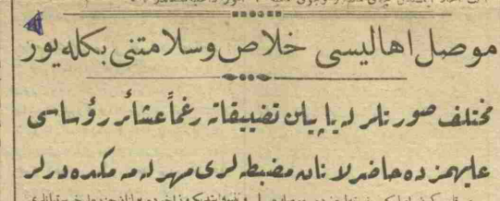 موصل اهاليسى خلاص وسلامتنى بكله يور
مختلف صورتلر له ياپيلان تضييقاته رغماً عشائر رؤساسى
عليهمزده حاضرلانان مضبطه لرى مهرله مه مكده درلر